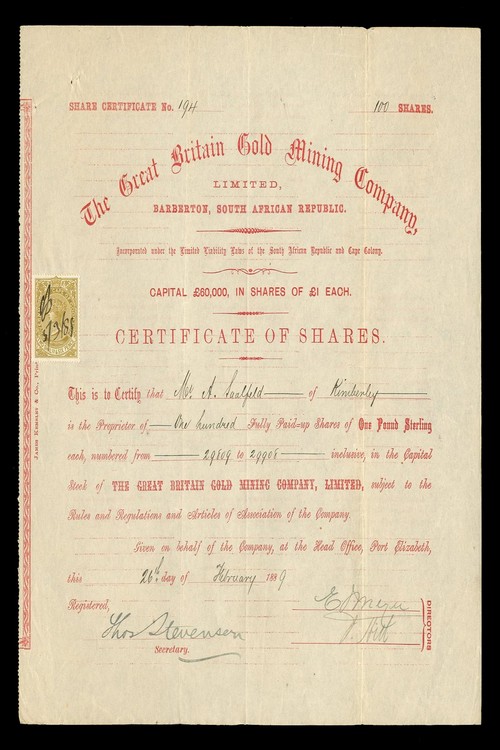 SHARE CERTIFICATE No. 194
100 SHARES.
The Great Britain Gold Mining Company,
LIMITED,
BARBERTON, SOUTH AFRICAN REPUBLIC.
Incorporated under the Limited Liability Laws of the South African Republic and Cape Colony.
CAPITAL £60,000, IN SHARES OF £1 EACH.
CERTIFICATE OF SHARES.
This is to Certify that Mr A. Saalfeld of Kimberley
is the Proprietor of One hundred Fully Paid-up Shares of One Pound Sterling
each, numbered from 29809 to 29908 inclusive, in the Capital
Stock of THE GREAT BRITAIN GOLD MINING COMPANY, LIMITED, subject to the
Rules and Regulations and Articles of Association of the Company.
Given on behalf of the Company, at the Head Office, Port Elizabeth,
this 26th day of February 1889
Registered,
Thos Stevenson
Secretary.
DIRECTORS